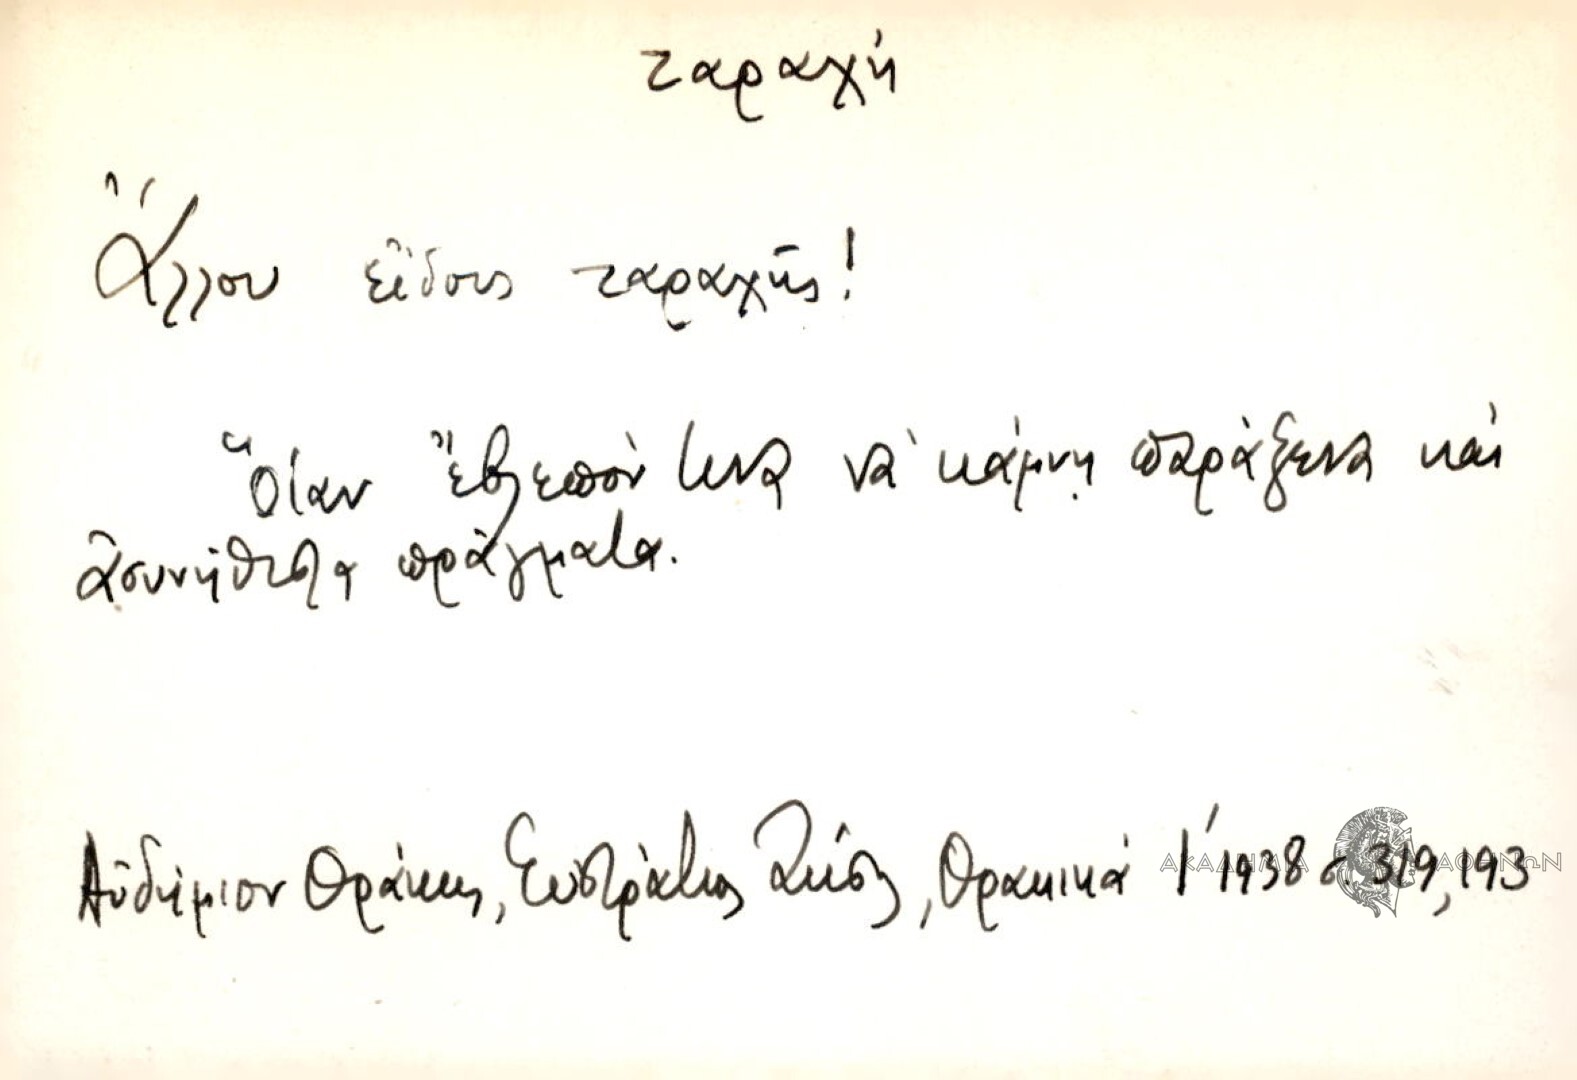 ταραχή
Ἄλλου εἴδους ταραχῆς!
Ὅταν ἔβλεπόν τινα νὰ κάμνῃ παράξενα καὶ
ἀσυνήθιστα πράγματα.
Αὐδήμιον Θράκης, Εὐστράτιος Ζήσης, Θρακικά Ι΄ 1938 σ. 319, 193
ΑΚΑΔΗΜΙΑ ΑΘΗΝΩΝ